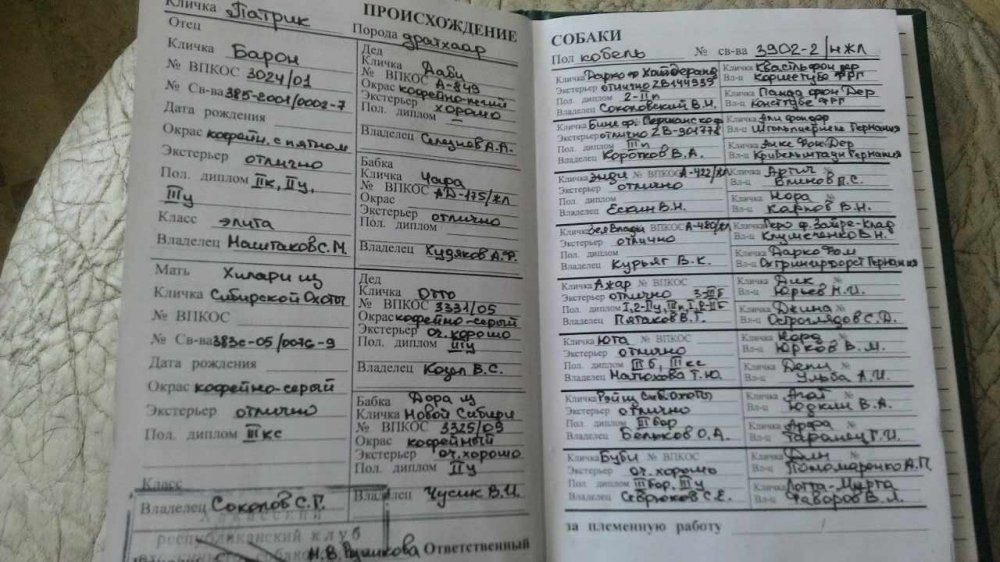 Кличка Патрик
ПРОИСХОЖДЕНИЕ
Порода дратхаар
Отец
Кличка Барон
№ ВПКОС 3024/01
№ Св-ва 385-2001/0002-7
Дата рождения
Окрас кофейн. с пятном
Экстерьер отлично
Пол. диплом IIк, IIу,
IIIу
Класс элита
Владелец Маштаков С.М.
Мать Хилари из
Кличка Сибирской Охоты
№ ВПКОС
№ Св-ва 383с-05/0076-9
Дата рождения
Окрас кофейно-серый
Экстерьер отлично
Пол. диплом III кс
Класс
Владелец Соколов С.Г.
республиканский клуб
Н.В. Ответственный
Дед
Кличка Даби
№ ВПКОС А-849
Окрас кофейно-пегий
Экстерьер хорошо
Пол. диплом —
Владелец Селезнов А.П.
Бабка
Кличка Чара
№ ВПКОС АД-175/жл
Окрас
Экстерьер отлично
Пол. диплом
Владелец Худяков А.Ф.
Дед
Кличка Отто
№ ВПКОС 3331/05
Окрас кофейно-серый
Экстерьер оч. хорошо
Пол. диплом IIIу
Владелец Козел В.С.
Бабка Дора из
Кличка Новой Сибири
№ ВПКОС 3325/09
Окрас кофейный
Экстерьер оч. хорошо
Пол. диплом IIу
Владелец Чусик В.И.
СОБАКИ
Пол кобель № св-ва 3902-2/нжл
Кличка Дарко ф.
Экстерьер отлично
Пол. диплом 2-IIп
Владелец Соколовский В.Н.
Кличка Квастль фон дер
Вл-ц ФРГ
Кличка фон Дер
Вл-ц ФРГ
Кличка Бине ф.
Экстерьер отлично ZB-901778
Пол. диплом IIIп
Владелец Коротков В.А.
Кличка
Вл-ц Германия
Кличка фон Дер
Вл-ц Германия
Кличка Энди № ВПКОС А-422/жл
Экстерьер отлично
Пол. диплом
Владелец Ескин В.Н.
Кличка Артич
Вл-ц Блинов П.С.
Кличка Нора
Вл-ц Карпов В.Н.
Кличка № ВПКОС А-480/жл
Экстерьер отлично
Пол. диплом
Владелец Курьяг В.К.
Кличка Геро ф.
Вл-ц Клуменченко В.Н.
Кличка Дарко Фом
Вл-ц Германия
Кличка Ажар № ВПКОС
Экстерьер отлично 3-IIIб
Пол. диплом
Владелец Пятаков В.Г.
Кличка Дик
Вл-ц Юрьев Н.И.
Кличка Деина
Вл-ц Остроглядов С.Д.
Кличка Юта № ВПКОС
Экстерьер отлично
Пол. диплом IIIб, III кс
Владелец Матюхова Т.Ю.
Кличка Норд
Вл-ц Юрков В.М.
Кличка Дени
Вл-ц Ульба А.И.
Кличка Рэй из Сиб.Охоты
Экстерьер отлично
Пол. диплом III бор
Владелец Бельков О.А.
Кличка Агат
Вл-ц Юдкин В.А.
Кличка Арфа
Вл-ц Таранец Г.И.
Кличка Буби № ВПКОС
Экстерьер оч. хорошо
Пол. диплом III бор, IIIу
Владелец Севрюков С.Е.
Кличка Дин
Вл-ц Пономаренко А.П.
Кличка Лотта-Мирта
Вл-ц Фаворов В.Л.
за племенную работу